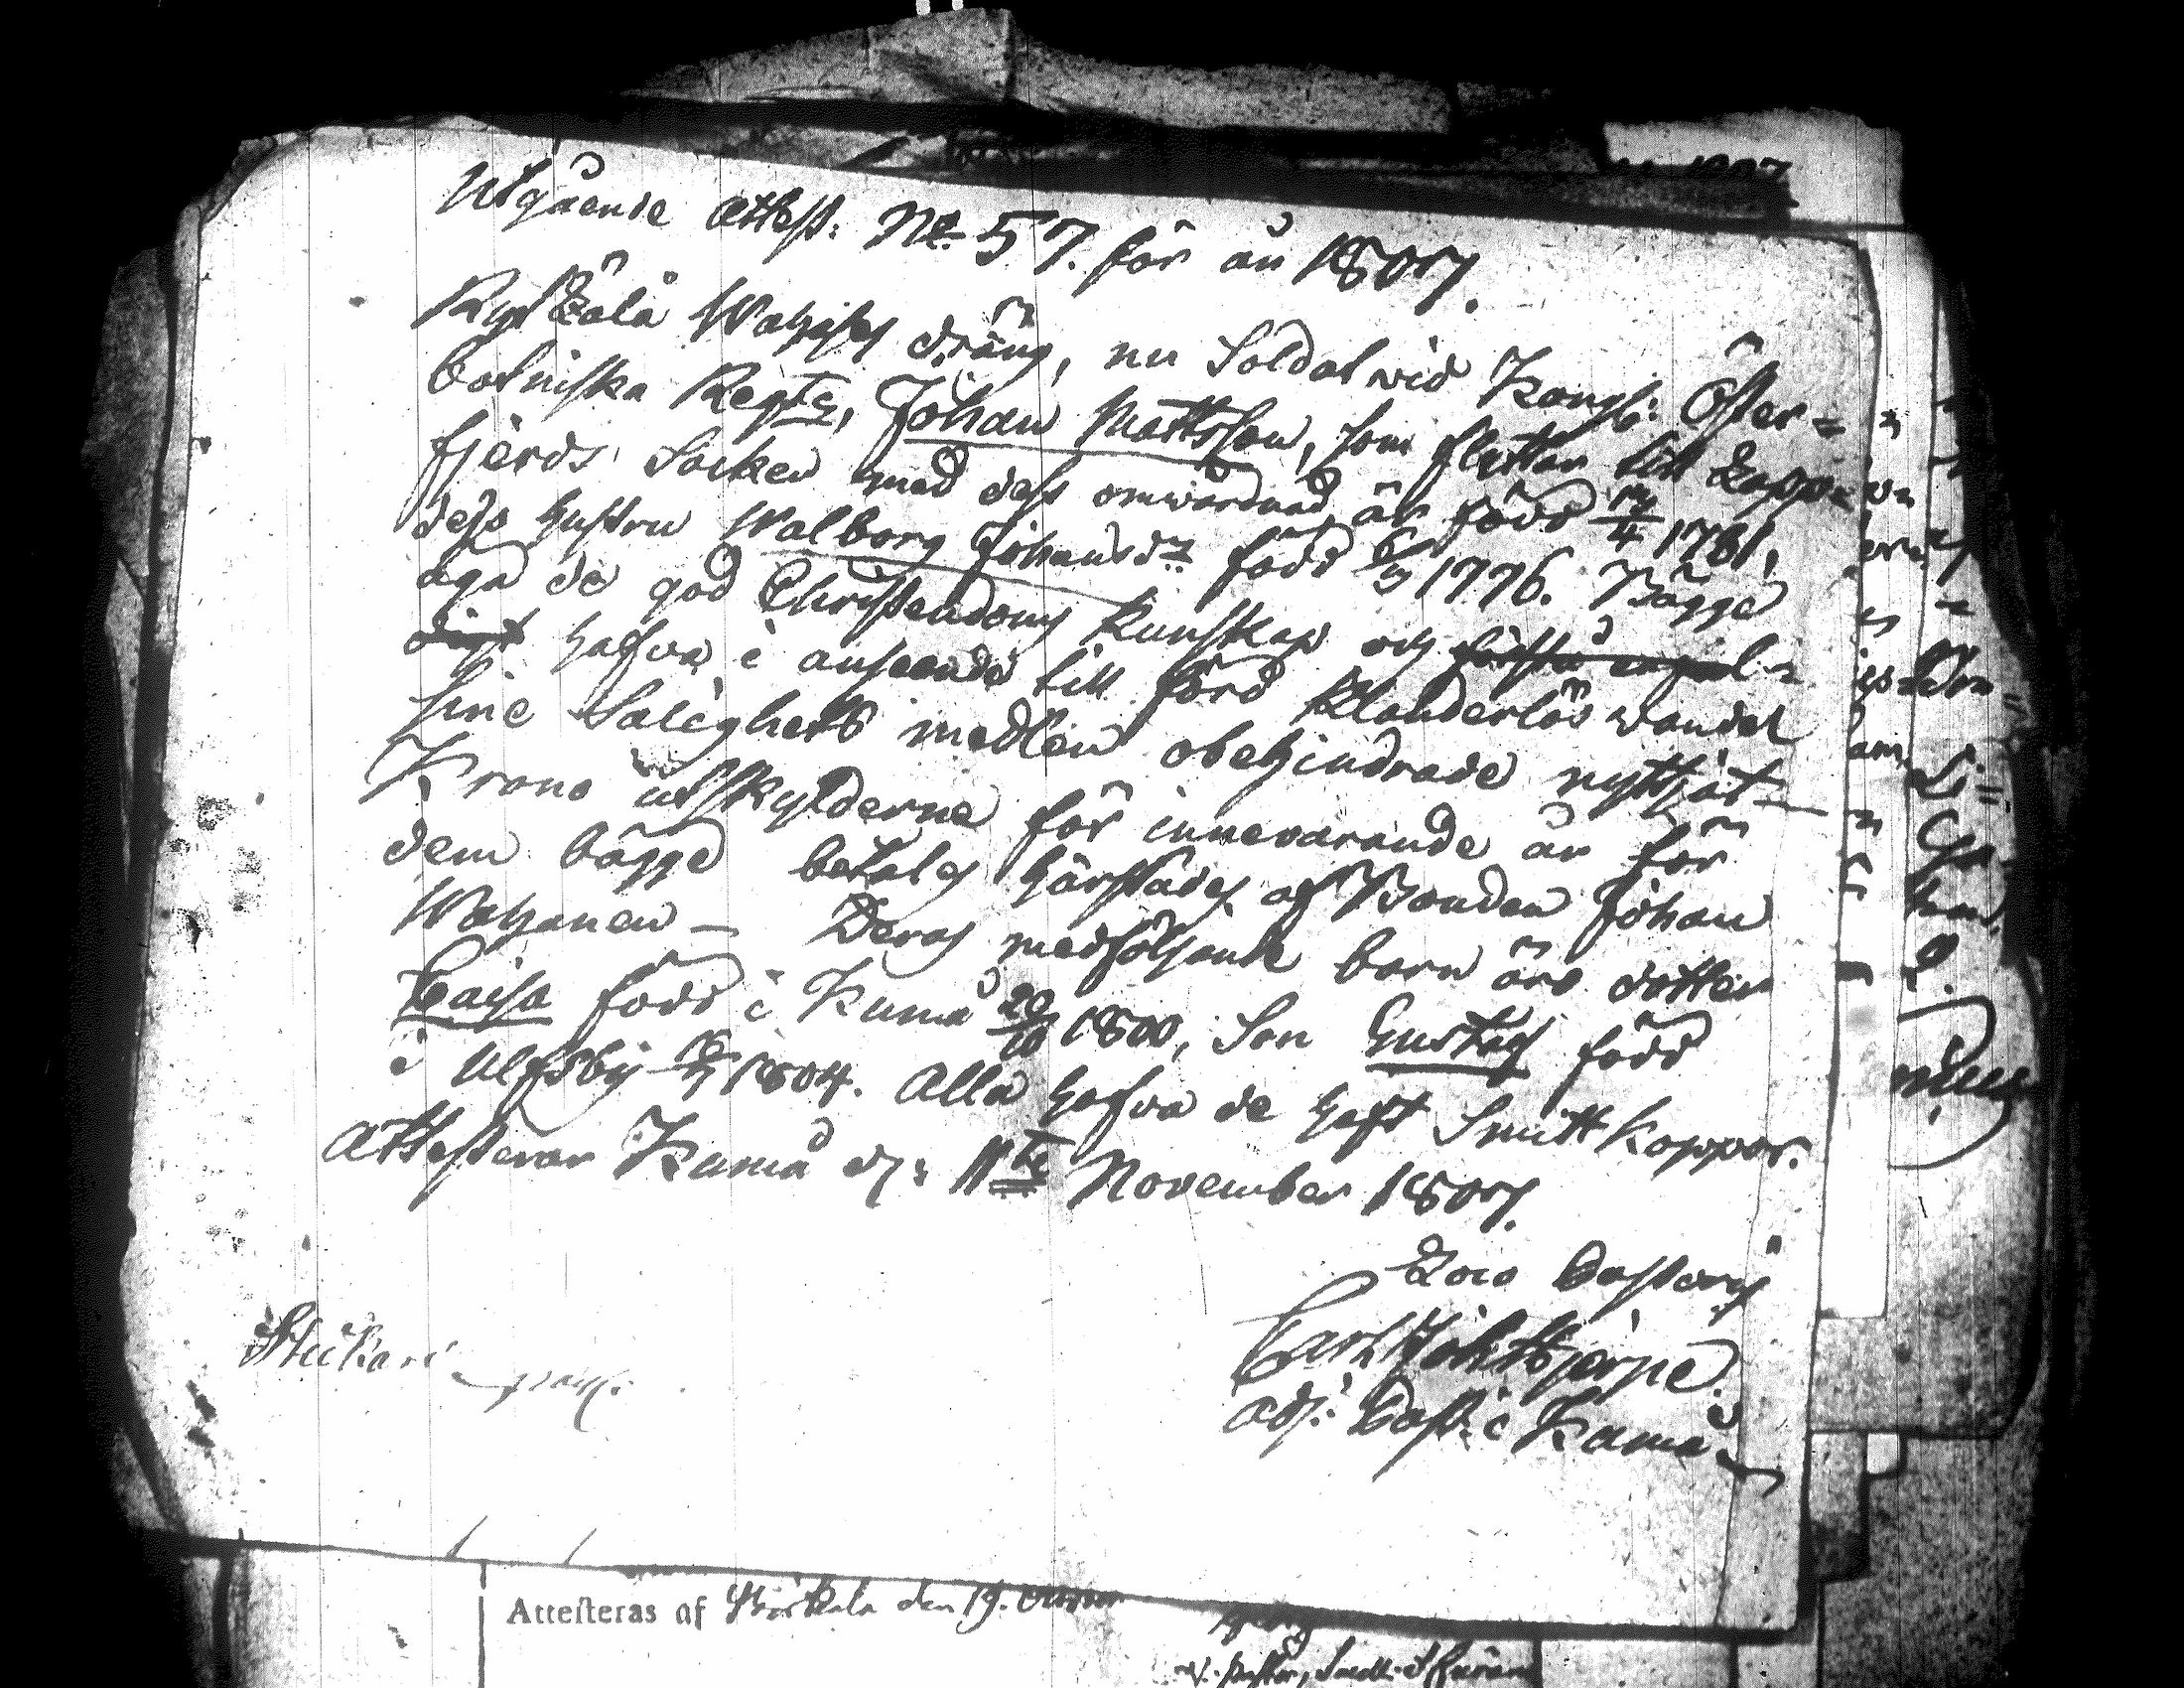 Utgående attest: No 57. för år 1807.
Kyrkälä Wahois dräng, nu Soldat wid Kongl: Öster=
botniska Regte, Johan Mattsson, som flyttar till Lapp=
fjerds Socken med dess omwårdnad, är född 17/4 1781,
dess hustru Walborg Johansdr född 6/9 1776. Bägge
äga de god Christendoms kunskap och förstå
hafva i anseende till förd klanderlös wandel
sine Salighets medlen obehindrade nyttjat —
Krono utskylderne för innevarande år för
dem bägge betales härstädes af Bonden Johan
Wahanen — Deras medföljande barn äro dotter
Caisa född i Kumå 20/10 1800, Son Gustaf född
i Ulfsby 1804. Alla hafva de haft Smittkoppor.
Attesterar Kumå d: 11te November 1807.
Loco Pastoris
Carl
adj: Past: i Kumå
Attesteras af den 19.